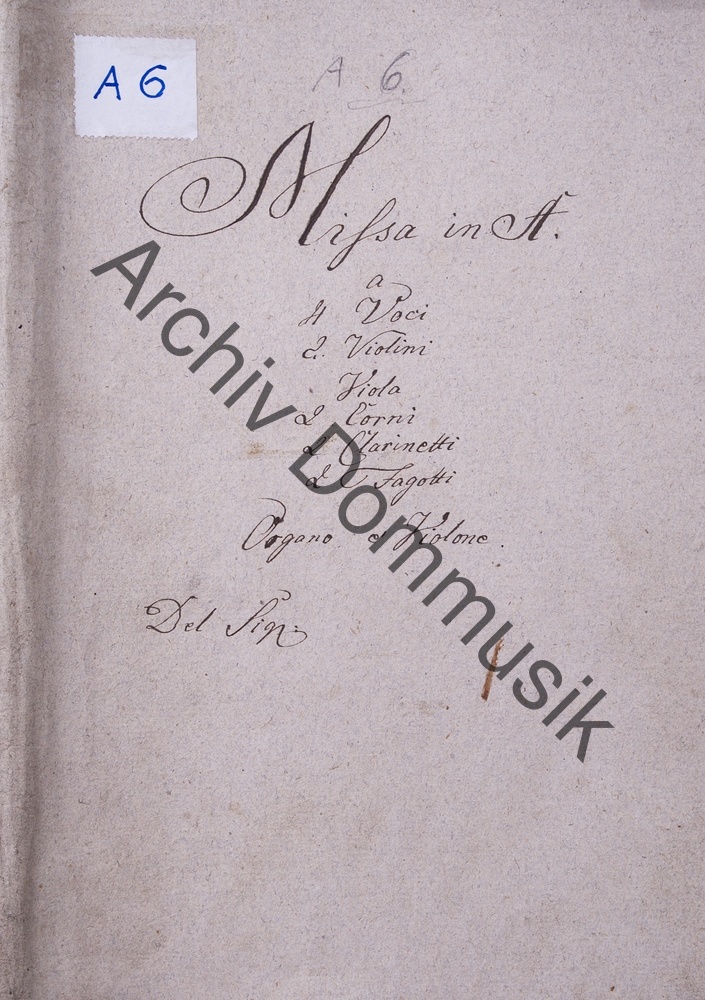 A 6
A 6.
Missa in A.
a
4 Voci
2. Violini
Viola
2 Corni
2 Clarinetti
2 Fagotti
Organo e Violone.
Del Sigr:
Archiv Dommusik